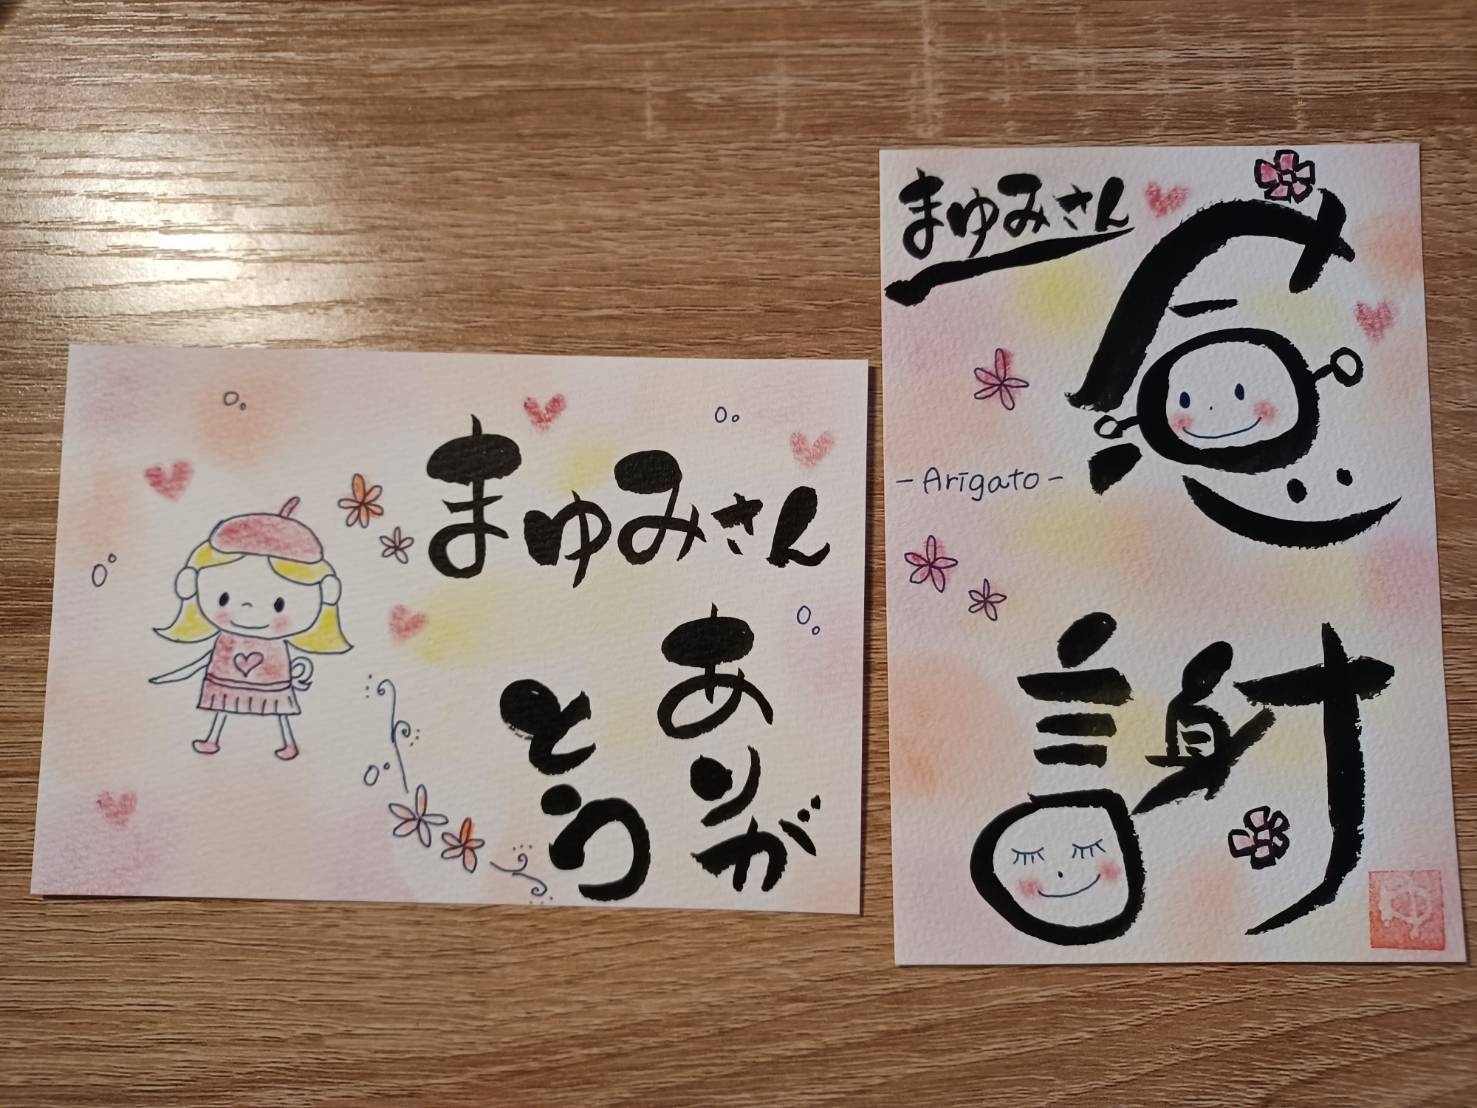 まゆみさん
ありが
とう
まゆみさん
感
- Arigato -
謝